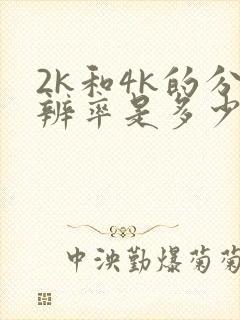 2K和4K的分
辨率是多少
中泱勤爆菊菊